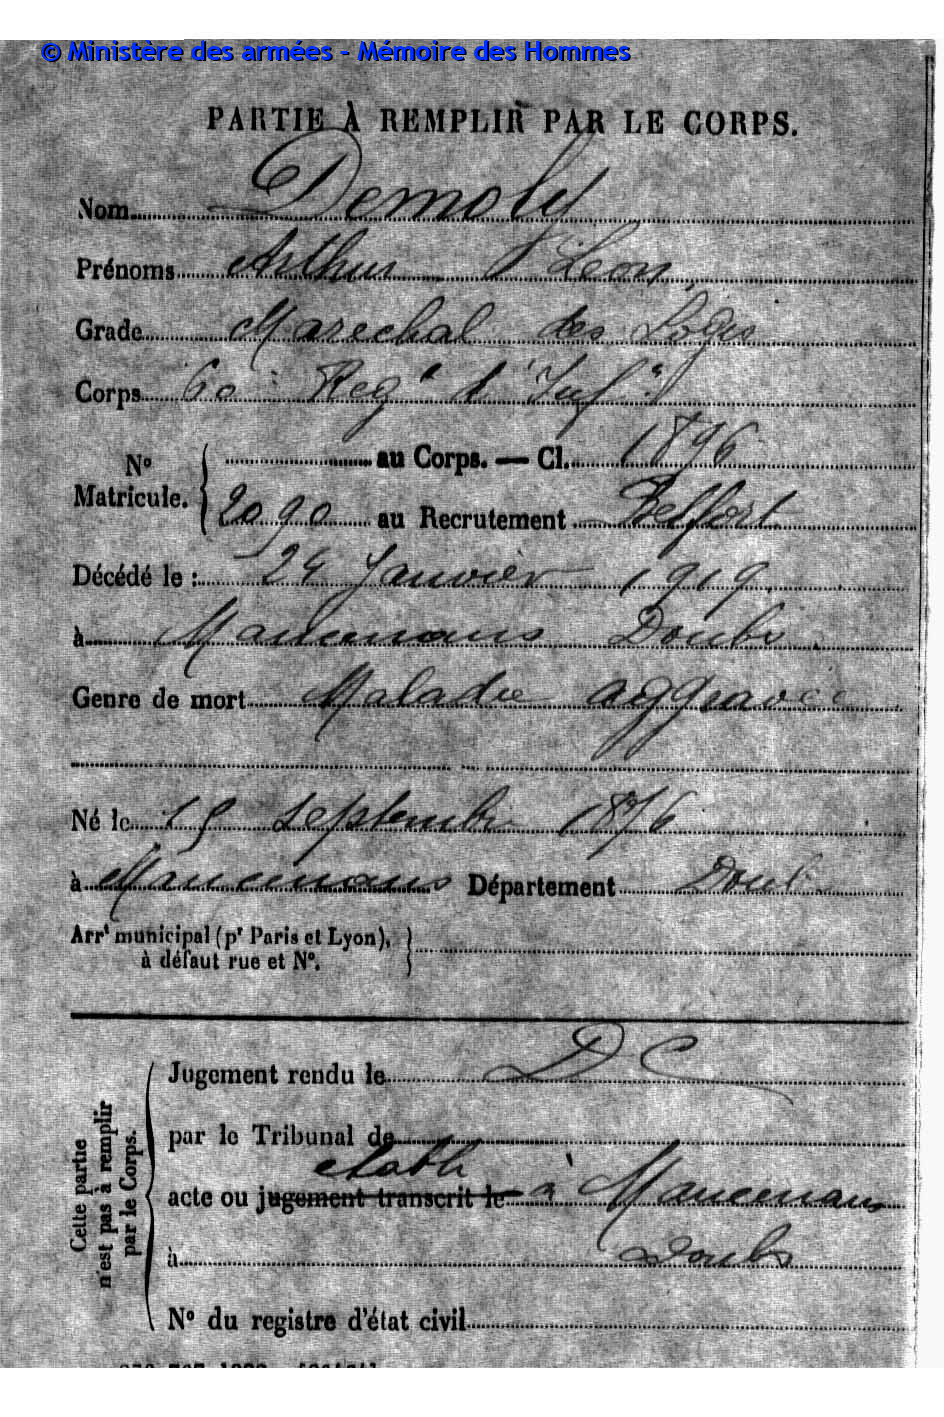 © Ministère des armées - Mémoire des Hommes
PARTIE À REMPLIR PAR LE CORPS.
Nom Demoly
Prénoms Arthur Léon
Grade Marechal des Logis
Corps 60e Regt d'Inf
N° Matricule. au Corps. — Cl. 1896
2090 au Recrutement Belfort
Décédé le : 24 Janvier 1919
à Mancenans Doubs.
Genre de mort Maladie aggravée
Né le 15 Septembre 1876
à Mancenans Département Doubs
Arrt municipal (pr Paris et Lyon),
à défaut rue et N°.
Cette partie n'est pas à remplir par le Corps.
Jugement rendu le DC
par le Tribunal de
établi
acte ou jugement transcrit le à Mancenans
à Doubs
N° du registre d'état civil